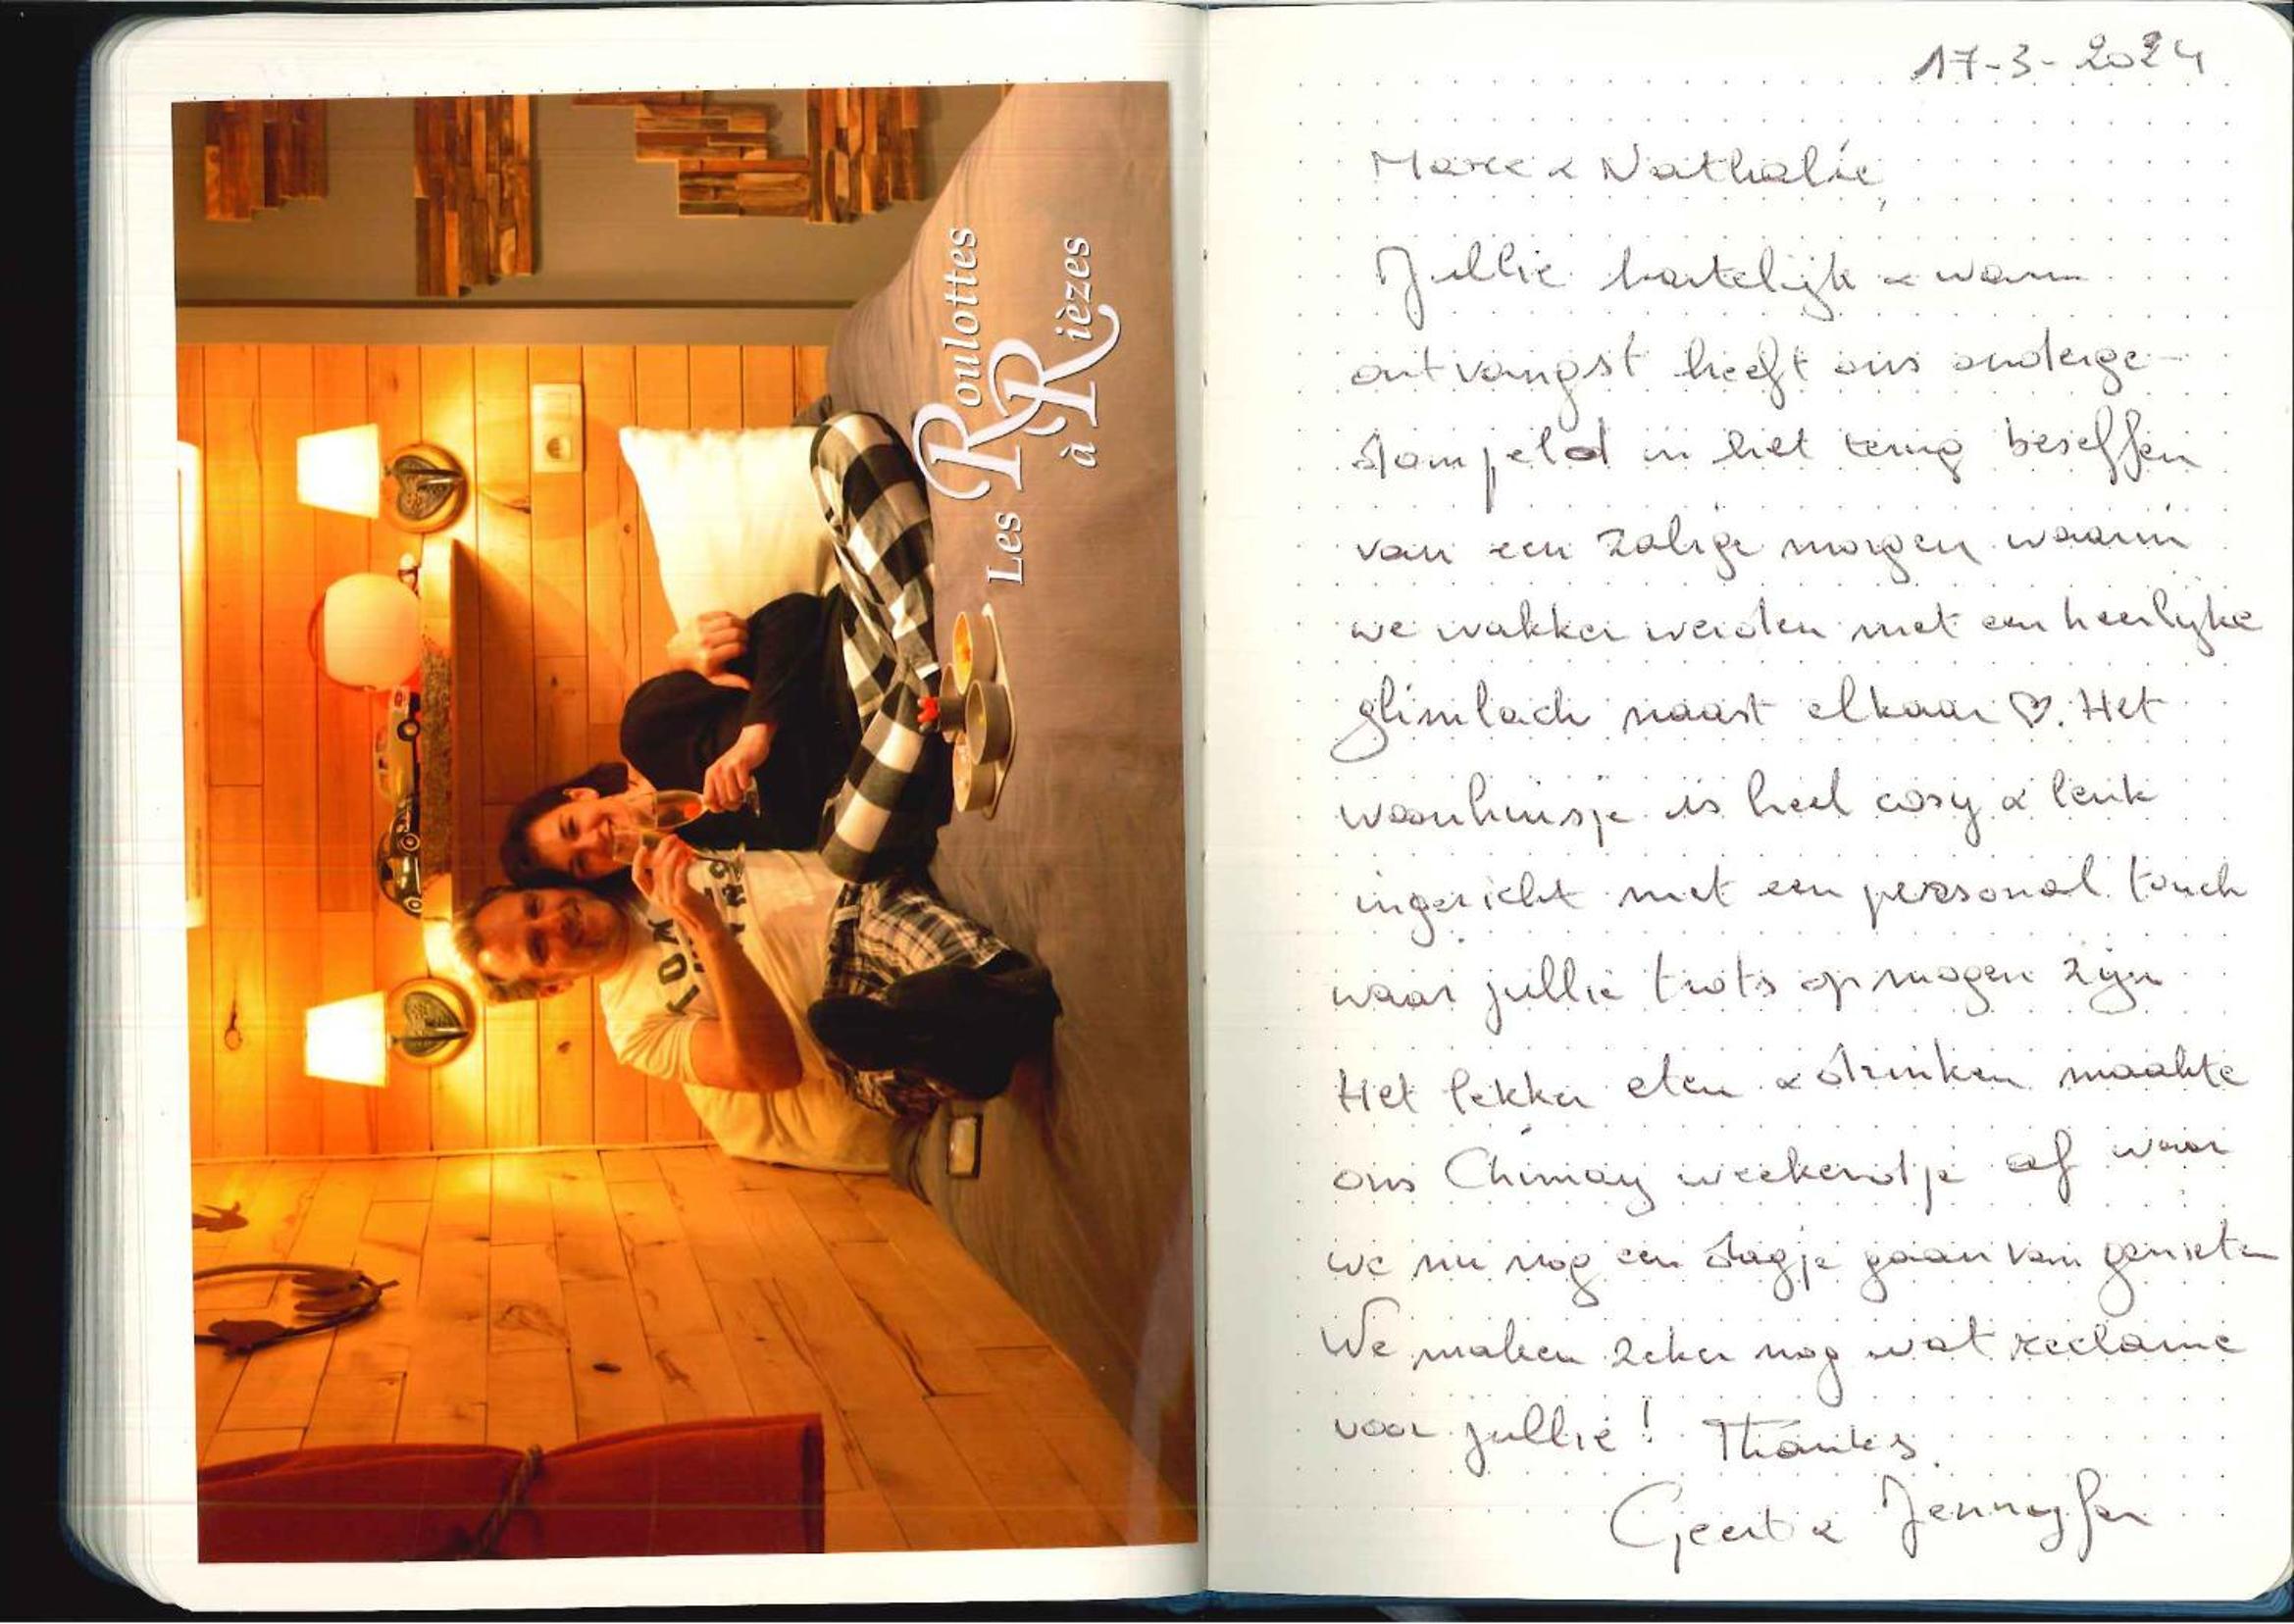 Les Roulottes
à Rièzes
TOM
17-3-2024
Marc & Nathalie,
Jullie hartelijk & warm
ontvangst heeft ons onderge-
dompeld in het terug beseffen
van een zalige morgen waarin
we wakker werden met een heerlijke
glimlach naast elkaar ♡. Het
woonhuisje is heel cosy & leuk
ingericht met een personal touch
waar jullie trots op mogen zijn
Het lekker eten & drinken maakte
ons Chimay weekendje af waar
we nu nog een dagje gaan van genieten
We maken zeker nog wat reclame
voor jullie! Thanks.
Geert & Jennyfer